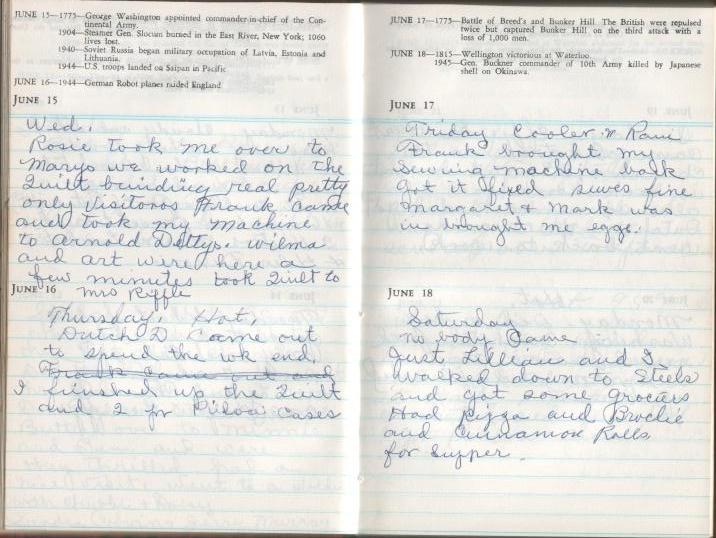 JUNE 15—1775—George Washington appointed commander-in-chief of the Con-
tinental Army.
1904—Steamer Gen. Slocum burned in the East River, New York; 1060
lives lost.
1940—Soviet Russia began military occupation of Latvia, Estonia and
Lithuania.
1944—U.S. troops landed on Saipan in Pacific
JUNE 16—1944—German Robot planes raided England
JUNE 15
Wed.
Rosie took me over to
Marys we worked on the
Quilt binding real pretty
only visitoros Frank came
and took my machine
to Arnold Dottys. Wilma
and art were here a
few minutes took Quilt to
Mrs Riffle
JUNE 16
Thursday, Hot,
Dutch D came out
to spend the wk end.
Frank came out and
I finished up the Quilt
and 2 pr Piloa cases
JUNE 17—1775—Battle of Breed's and Bunker Hill. The British were repulsed
twice but captured Bunker Hill on the third attack with a
loss of 1,000 men.
JUNE 18—1815—Wellington victorious at Waterloo.
1945—Gen. Buckner commander of 10th Army killed by Japanese
shell on Okinawa.
JUNE 17
Friday Cooler n Rain
Frank brought my
Sewing machine back
Got it fixed sewes fine
Margaret & Mark was
in brought me eggs.
JUNE 18
Saturday
no body Came
Just Lillian and I
walked down to Steels
and got some
Had pizza and
and Cinnamon Rolls
for Supper.